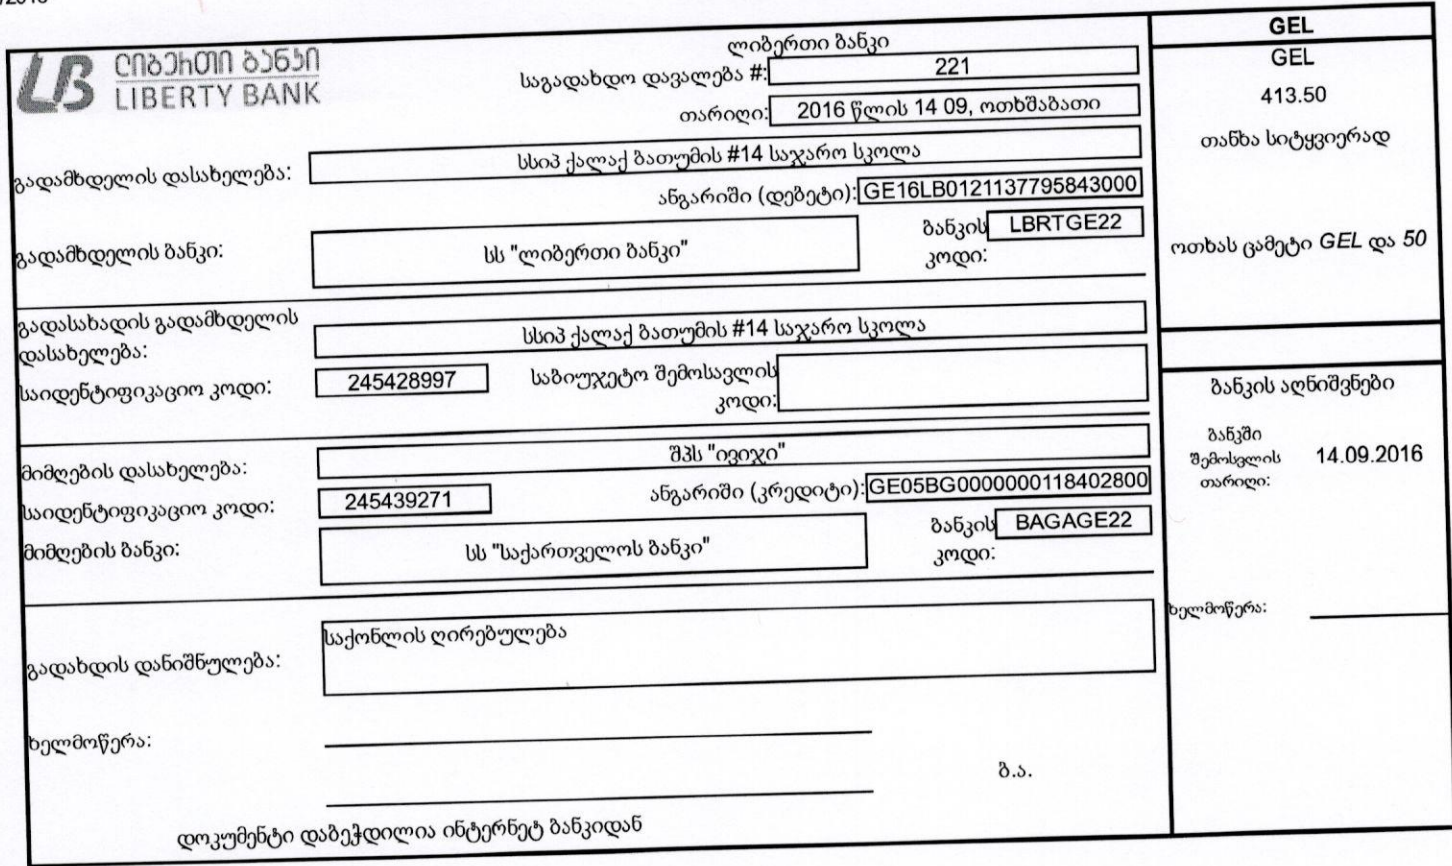 ლიბერთი ბანკი
LIBERTY BANK
ლიბერთი ბანკი
საგადახდო დავალება #: 221
თარიღი: 2016 წლის 14 09, ოთხშაბათი
გადამხდელის დასახელება: სსიპ ქალაქ ბათუმის #14 საჯარო სკოლა
ანგარიში (დებეტი): GE16LB0121137795843000
გადამხდელის ბანკი: სს "ლიბერთი ბანკი" ბანკის LBRTGE22
კოდი:
გადასახადის გადამხდელის
დასახელება: სსიპ ქალაქ ბათუმის #14 საჯარო სკოლა
საიდენტიფიკაციო კოდი: 245428997 საბიუჯეტო შემოსავლის
კოდი:
მიმღების დასახელება: შპს "ივიჯი"
საიდენტიფიკაციო კოდი: 245439271 ანგარიში (კრედიტი): GE05BG0000000118402800
მიმღების ბანკი: სს "საქართველოს ბანკი" ბანკის BAGAGE22
კოდი:
გადახდის დანიშნულება: საქონლის ღირებულება
ხელმოწერა:
ბ.ა.
დოკუმენტი დაბეჭდილია ინტერნეტ ბანკიდან
GEL
GEL
413.50
თანხა სიტყვიერად
ოთხას ცამეტი GEL და 50
ბანკის აღნიშვნები
ბანკში
შემოსვლის 14.09.2016
თარიღი:
ხელმოწერა: